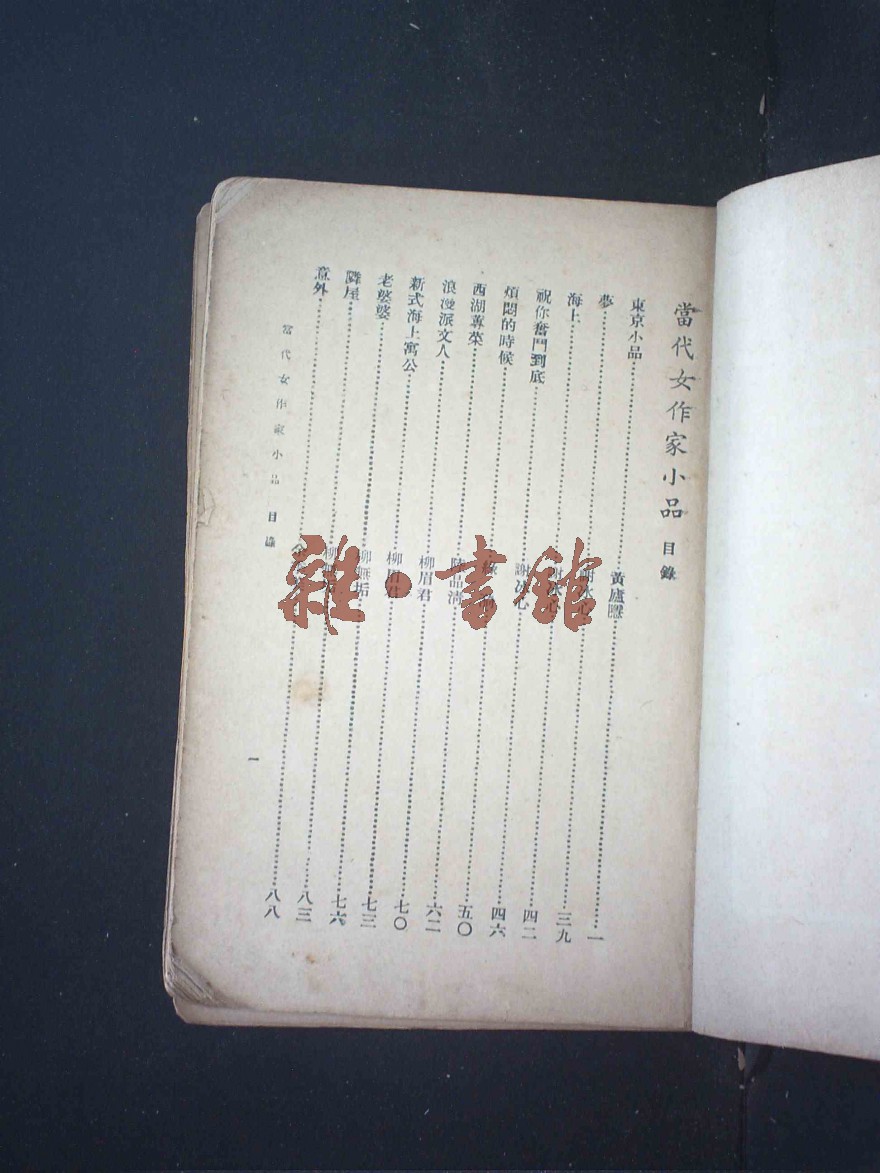 當代女作家小品 目錄
東京小品 黃廬隱 一
夢 謝冰心 三九
海上 謝冰心 四二
祝你奮鬥到底 謝冰心 四六
煩悶的時候 五〇
西湖蓴菜 陸品清 六二
浪漫派文人 柳眉君 七〇
新式海上寓公 柳眉君 七三
老婆婆 柳無垢 七六
隣屋 柳無垢 八三
意外 八八
當代女作家小品 目錄
一
雜·書館